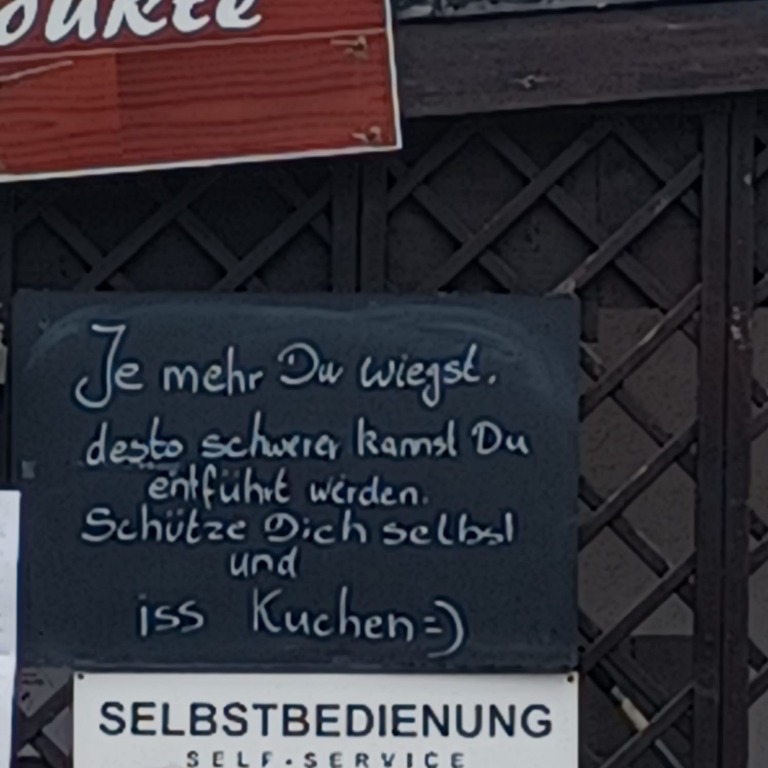 dukte
Je mehr Du wiegst.
desto schwerer kannst Du
entführt werden.
Schütze Dich selbst
und
iss Kuchen=)
SELBSTBEDIENUNG
SELF-SERVICE